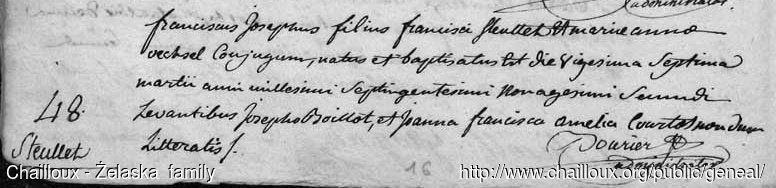 administrator
franciscus Josephus filius francisci Steullet Et mariae anna
vechsel Conjugum, natus et baptisatus Est die Vigesima Septima
martii anni millesimi Septingentesimi Nonagesimi Secundi
Levantibus Josepho Boillot, et Joanna francisca amelia Courtot nondum
Litteratis
48
Steullet
Pourier
administrator
Chailloux - Żelaska family
http://www.chailloux.org/public/geneal/